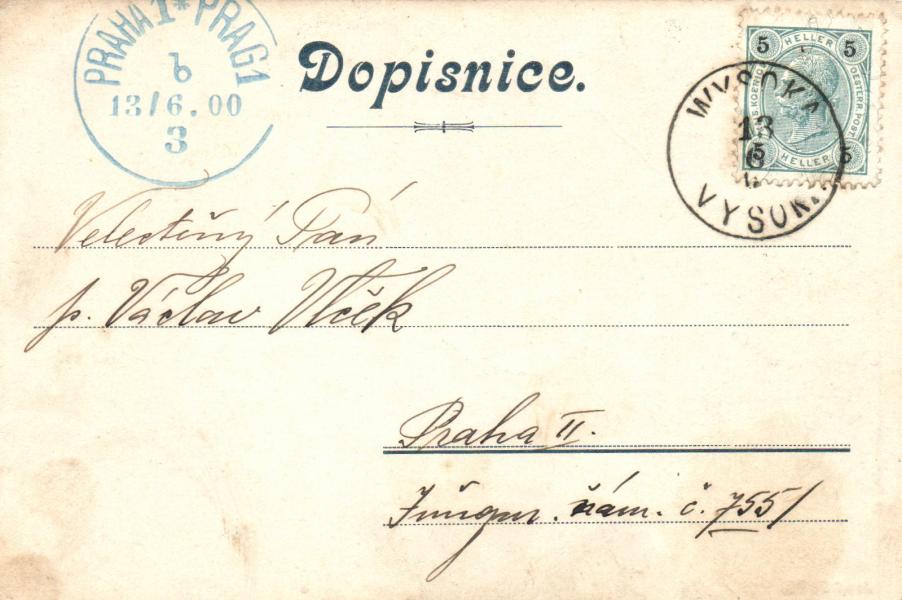 PRAHA 1 * PRAG 1
b
13/6.00
3
Dopisnice.
5 HELLER 5
OESTERR. POST
5 HELLER 5
WYSOKA
13
6
VYSOK
Velectěný Pán
p. Václav Vlček
Praha II.
Jungm. nám. č. 755/